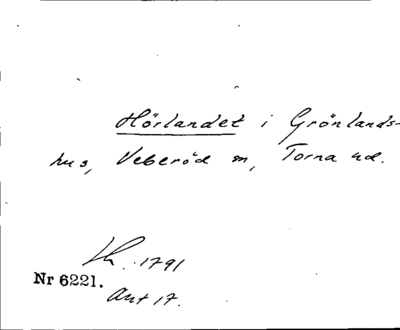 Hörlandet i Grönlands-
hus, Veberöd sn, Torna hd.
Lh. 1791
Nr 6221.
Ant 17.